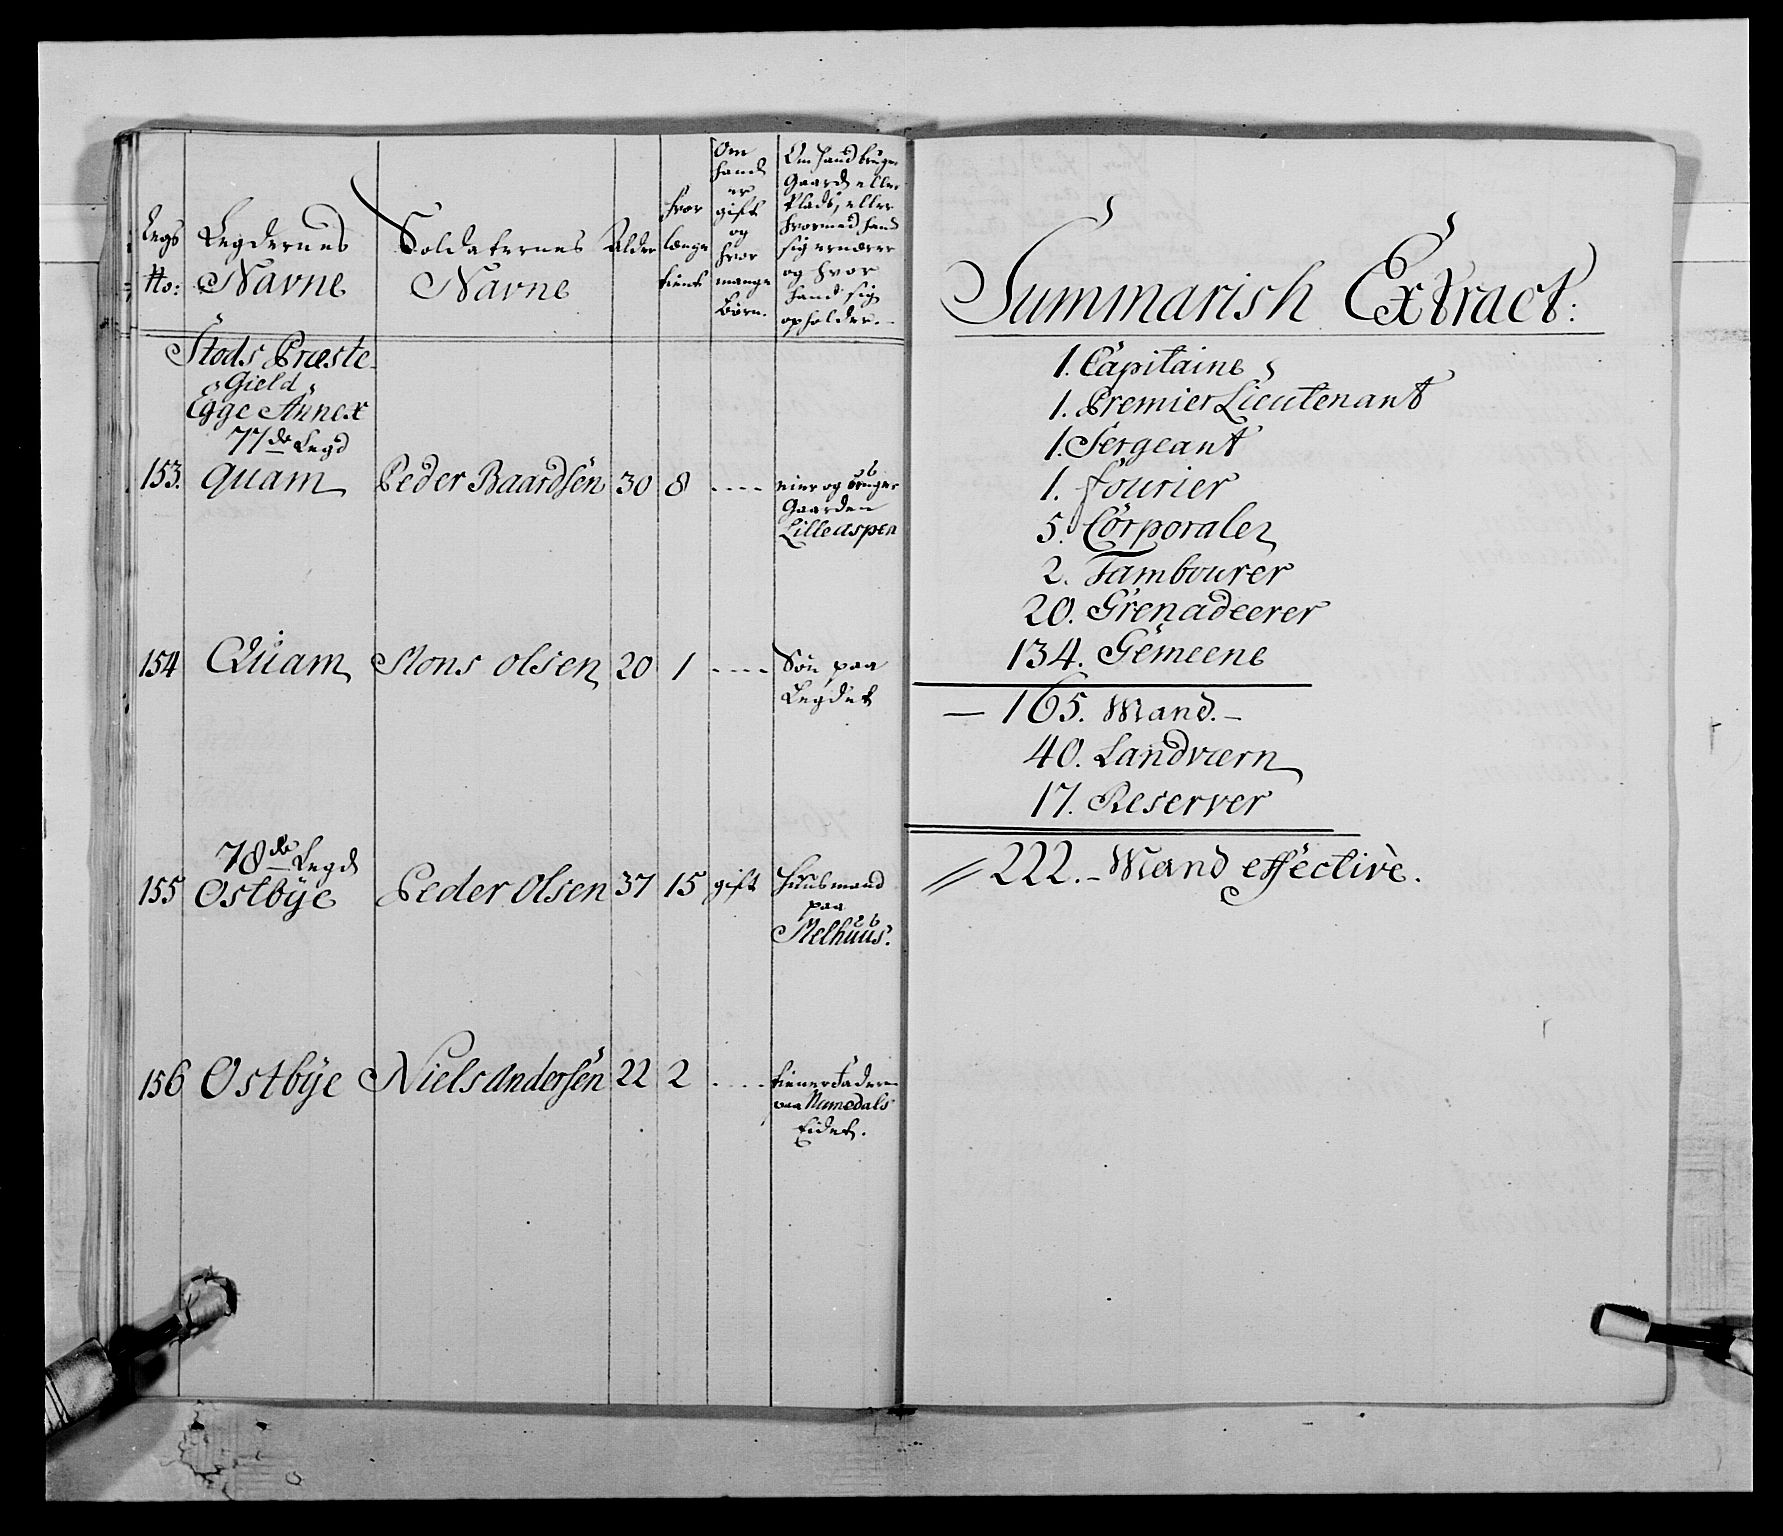 Legs No:
Legdernes Navne
Soldaternes Navne
Alder
hvor længe tient
Om hand er gift og hvor mange Börn.
Om hand bruger Gaard eller Plads, eller hvormed hand sig ernærer og hvor hand sig opholder.
Stods Præste-
Gield
Egge Annex
77de Legd
153. Quam Peder Baardsen 30 8 ---- eier og bruger
Gaarden
Lilleaspen
154 Quam Mons Olsen 20 1 ---- Sön paa
Legdet
78de Legd
155 Ostbÿe Peder Olsen 37 15 gift Huusmand
paa
Melhuus.
156 Ostbÿe Niels Andersen 22 2 ---- tiener Faderen
paa Numedals
Eidet.
Summarish Extract:
1. Capitaine
1. Premier Lieutenant
1. Sergeant
1. fourier
5. Corporaler
2. Tambourer
20. Grenadeerer
134. Gemeene
— 165. Mand. —
40. Landværn
17. Reserver
// 222. - Mand effective.